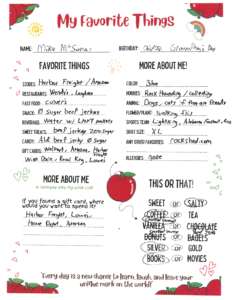 My Favorite Things
NAME: Mike McSuna BIRTHDAY: Groundhog's Day
FAVORITE THINGS
STORES: Harbor Freight / Amazon
RESTAURANTS: Wendy's,
FAST FOOD: Culver's
SNACK: Sugar beef jerky
BEVERAGE: Water w/ packets
SWEET TREATS: beef jerky zero sugar
CANDY: beef jerky Sugar
GIFT CARDS: Walmart, Amazon, Harbor Freight
Lowes
MORE ABOUT ME!
COLOR: Blue
HOBBIES: Rock Hounding /
ANIMAL: Dogs, cats if they are friends
FLOWER/PLANT: Walking
SPORTS TEAM: Alabama Football,
SHIRT SIZE: XL
ANY OTHER FAVORITES: rockshed.com
ALLERGIES: none
MORE ABOUT ME
If you found a gift card, where
would you want to spend it?
Harbor Freight, Lowes,
Home Depot, Amazon
THIS OR THAT!
SWEET or SALTY
COFFEE or TEA
VANILLA or CHOCOLATE
DONUTS or BAGELS
SILVER or GOLD
BOOKS or MOVIES
"Every day is a new chance to learn, laugh, and leave your
unique mark on the world!"